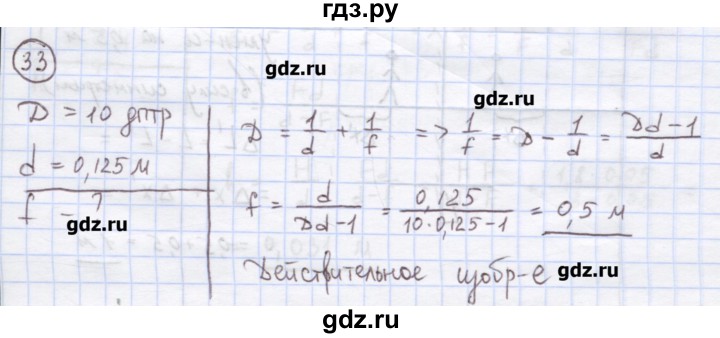 гдз.ру
33
gdz.ru
gdz.ru
D = 10 дптр
d = 0,125 м
f - ?
gdz.ru
D = 1/d + 1/f => 1/f = D - 1/d = (Dd-1)/d
f = d/(Dd-1) = 0,125/(10·0,125-1) = 0,5 м
gdz.ru
Действительное изобр-е
gdz.ru
gdz.ru